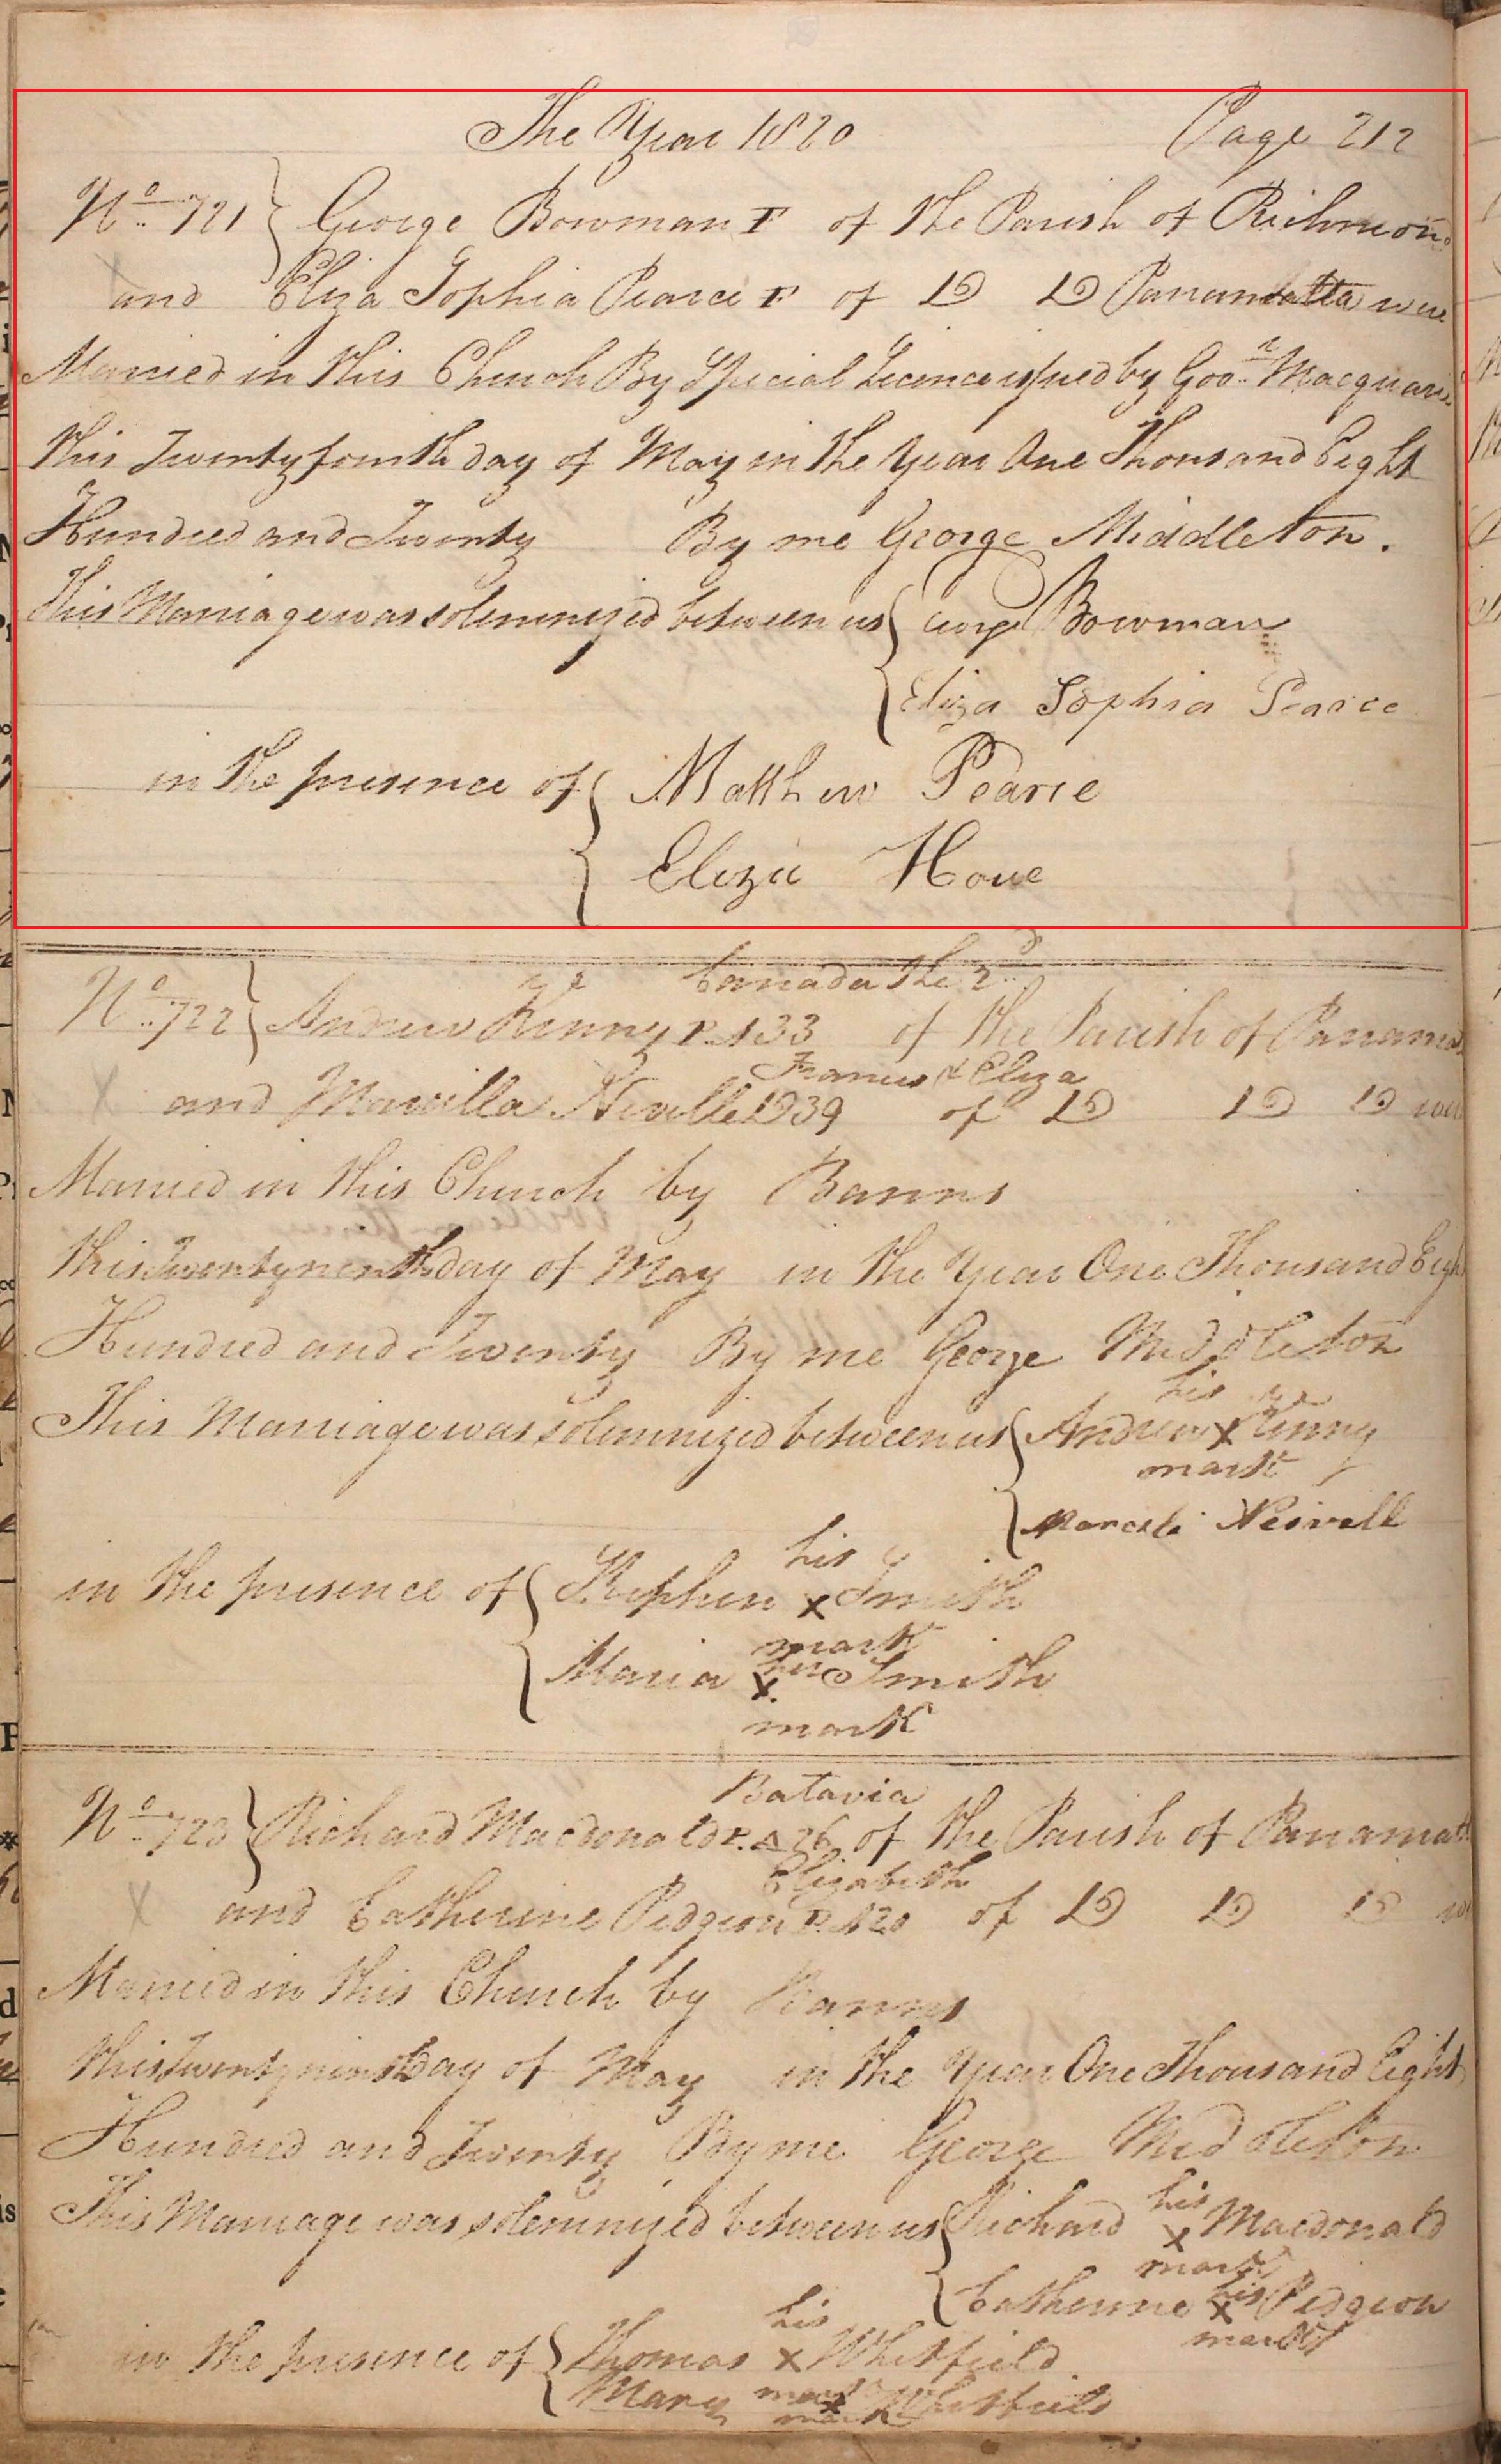 The Year 1820 Page 212
No. 721 } George Bowman F of the Parish of Richmond
and Eliza Sophia Pearce F of Do Do Parramatta were
Married in this Church By Special Licence issued by Gov.r Macquarie
this Twenty fourth day of May in the Year One Thousand Eight
Hundred and Twenty By me George Middleton.
This Marriage was solemnized between us { George Bowman
{ Eliza Sophia Pearce
in the presence of { Matthew Pearce
{ Eliza Howe
Canada the 2d
No. 722 } Andrew Kinny P. A 33 of the Parish of Parrama
Francis & Eliza
and Marcilla Neville 39 of Do Do Do were
Married in this Church by Banns
this Twenty ninth day of May in the Year One Thousand Eigh
Hundred and Twenty By me George Middleton
his
This Marriage was solemnized between us { Andrew X Kinny
mark
{ Neivell
his
in the presence of { Stephen X Smith
mark
her
{ Maria X Smith
mark
Batavia
No. 723 } Richard Macdonald P. A 26 of the Parish of Parramatt
Elizabeth
and Catherine Pidgeon P. A 20 of Do Do Do
Married in this Church by Banns
this Twenty ninth day of May in the Year One Thousand Eight
Hundred and Twenty By me George Middleton
his
This Marriage was solemnized between us { Richard X Macdonald
mark
his
{ Catherine X Pidgeon
mark
his
in the presence of { Thomas X Whitfield
mark
{ Mary X Whitfield
mark